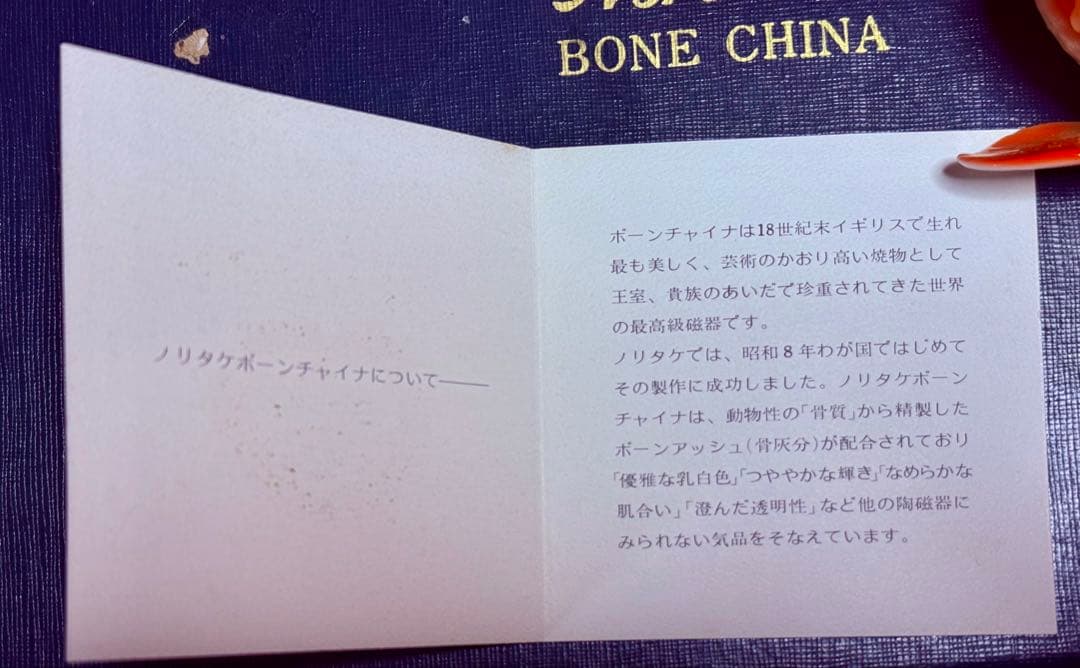 BONE CHINA
ノリタケボーンチャイナについて――
ボーンチャイナは18世紀末イギリスで生れ
最も美しく、芸術のかおり高い焼物として
王室、貴族のあいだで珍重されてきた世界
の最高級磁器です。
ノリタケでは、昭和8年わが国ではじめて
その製作に成功しました。ノリタケボーン
チャイナは、動物性の「骨質」から精製した
ボーンアッシュ(骨灰分)が配合されており
「優雅な乳白色」「つややかな輝き」「なめらかな
肌合い」「澄んだ透明性」など他の陶磁器に
みられない気品をそなえています。